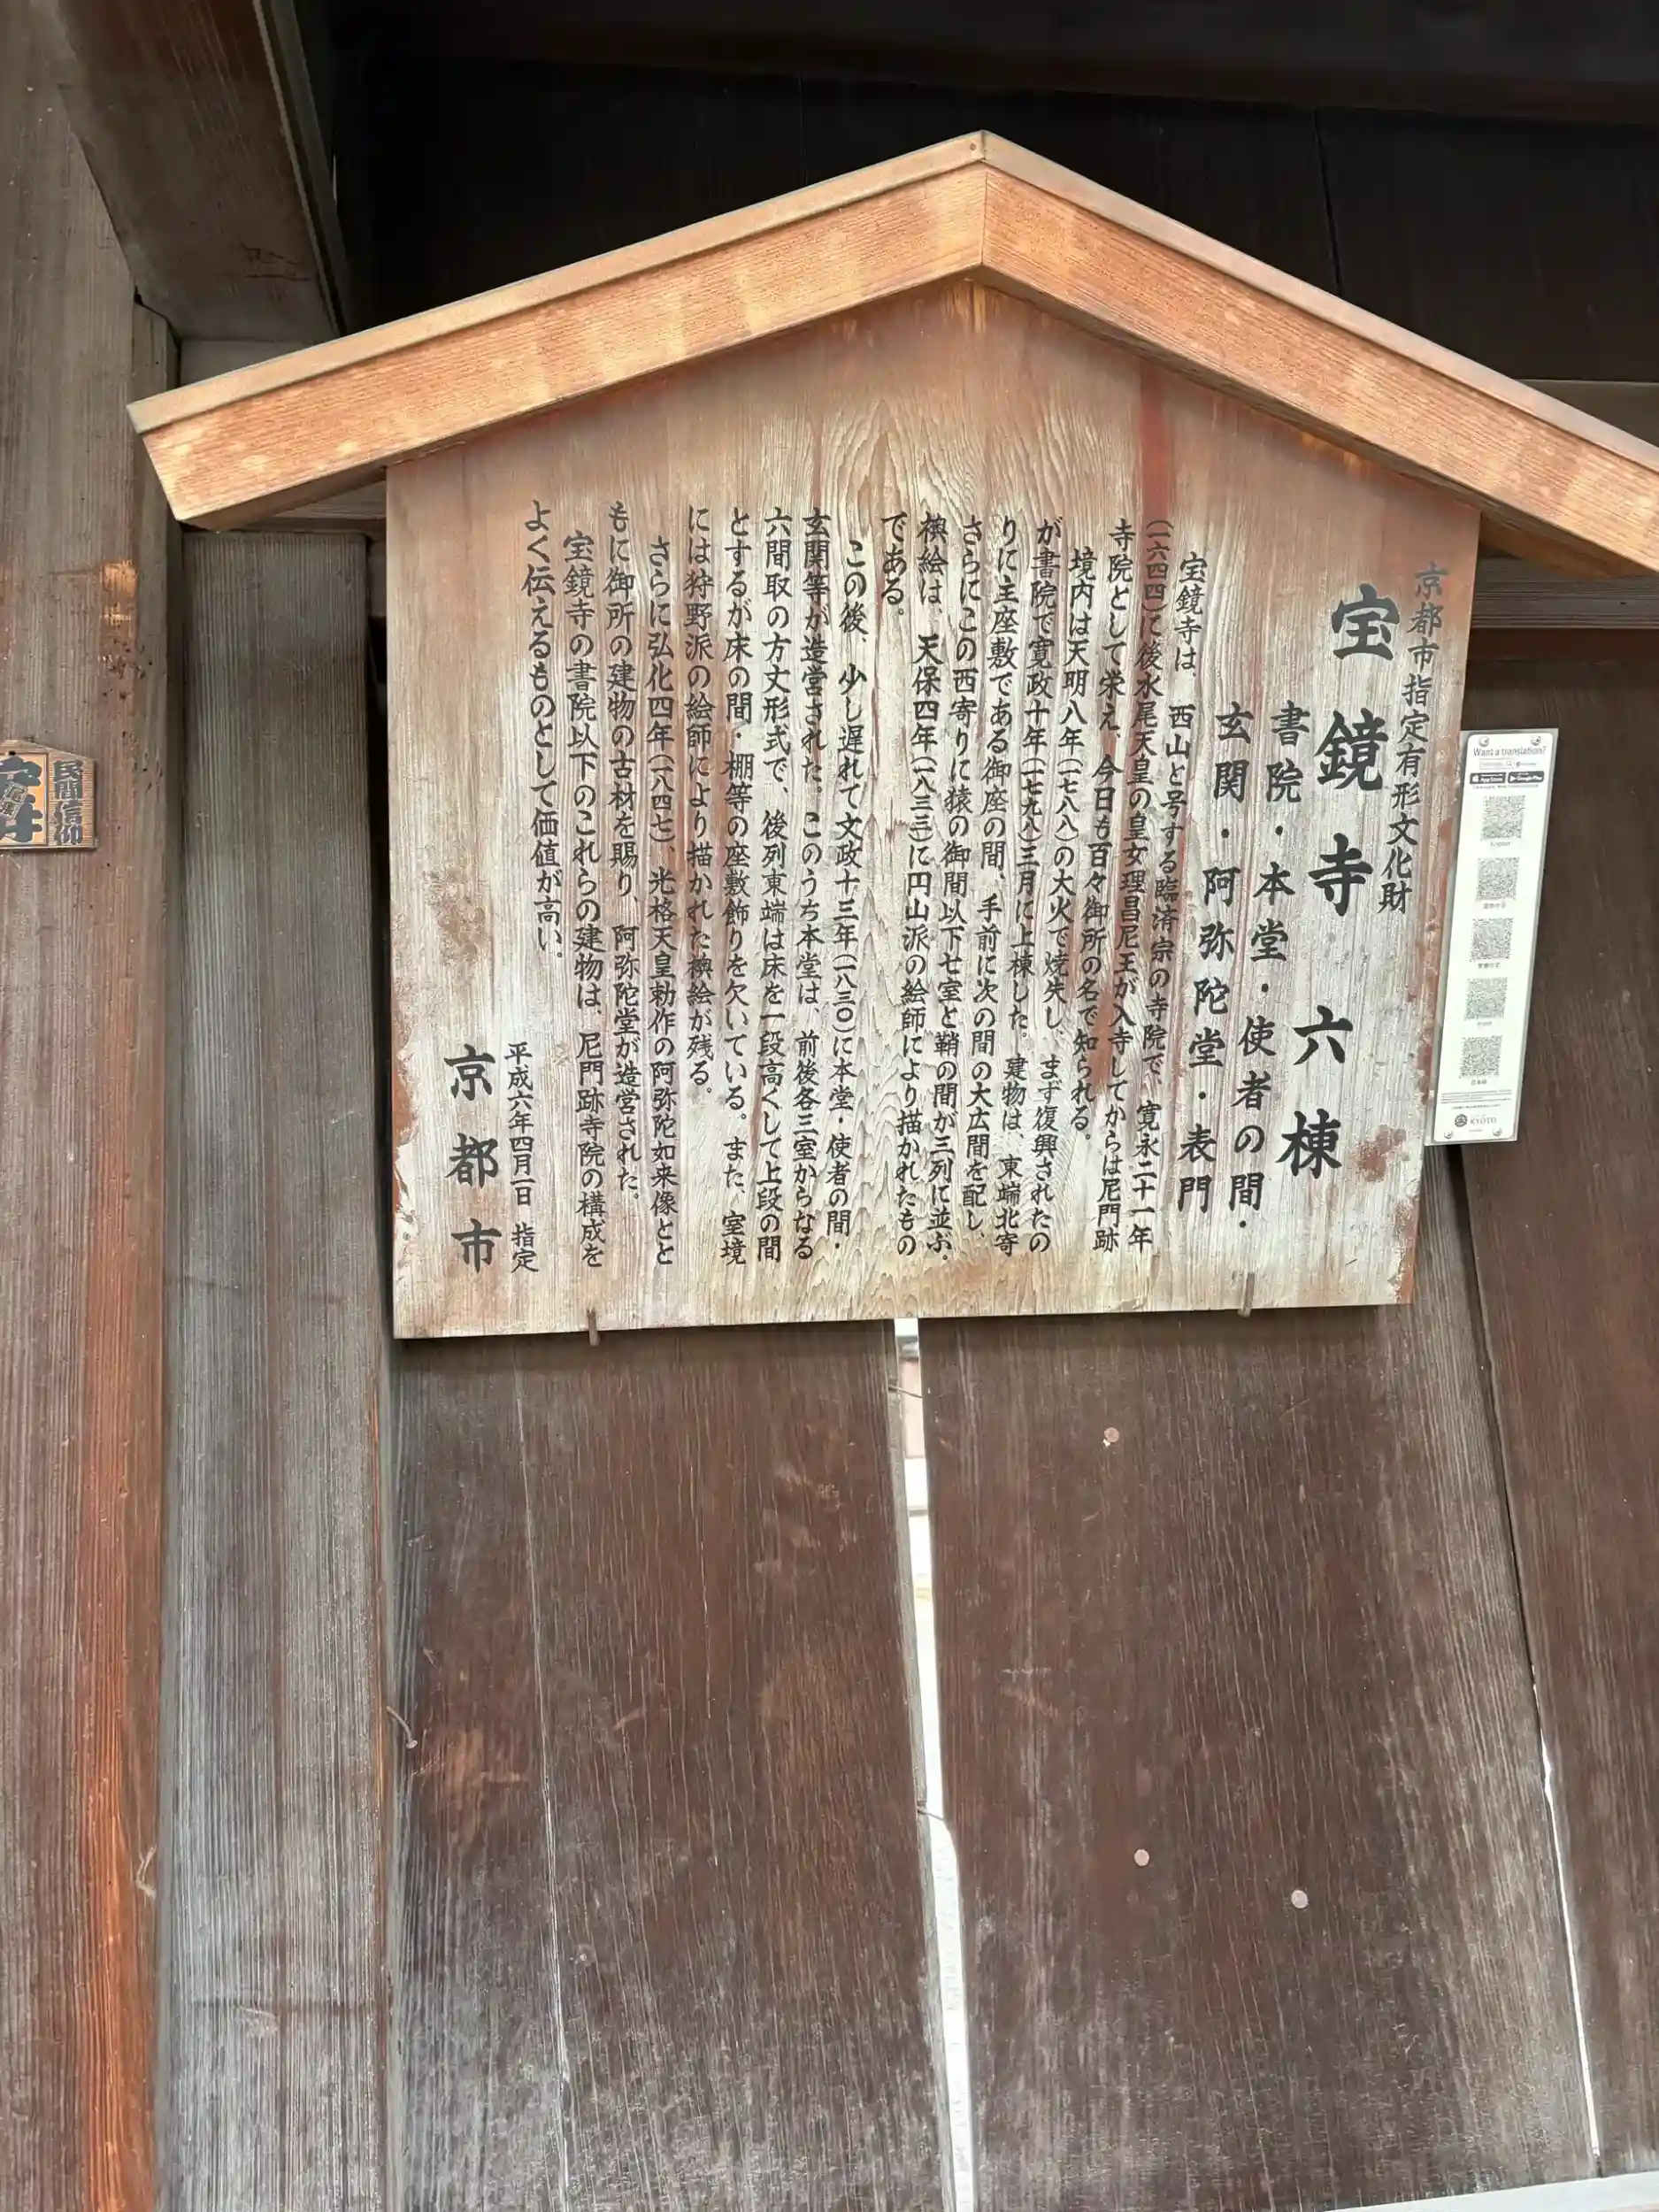 京都市指定有形文化財
宝鏡寺 六棟
書院・本堂・使者の間・
玄関・阿弥陀堂・表門
宝鏡寺は、西山と号する臨済宗の寺院で、寛永二十一年
(一六四四)に後水尾天皇の皇女理昌尼王が入寺してからは尼門跡
寺院として栄え、今日も百々御所の名で知られる。
境内は天明八年(一七八八)の大火で焼失し、まず復興されたの
が書院で寛政十年(一七九八)三月に上棟した。建物は、東端北寄
りに主座敷である御座の間、手前に次の間の大広間を配し、
さらにこの西寄りに猿の御間以下七室と鞘の間が三列に並ぶ・
襖絵は、天保四年(一八三三)に円山派の絵師により描かれたもの
である。
この後、少し遅れて文政十三年(一八三〇)に本堂・使者の間・
玄関等が造営された。このうち本堂は、前後各三室からなる
六間取の方丈形式で、後列東端は床を一段高くして上段の間
とするが床の間・棚等の座敷飾りを欠いている。また、室境
には狩野派の絵師により描かれた襖絵が残る。
さらに弘化四年(一八四七)、光格天皇勅作の阿弥陀如来像とと
もに御所の建物の古材を賜り、阿弥陀堂が造営された。
宝鏡寺の書院以下のこれらの建物は、尼門跡寺院の構成を
よく伝えるものとして価値が高い。
平成六年四月一日 指定
京都市
Want a translation?
App Store
Google Play
日本語
KYOTO
民間信仰